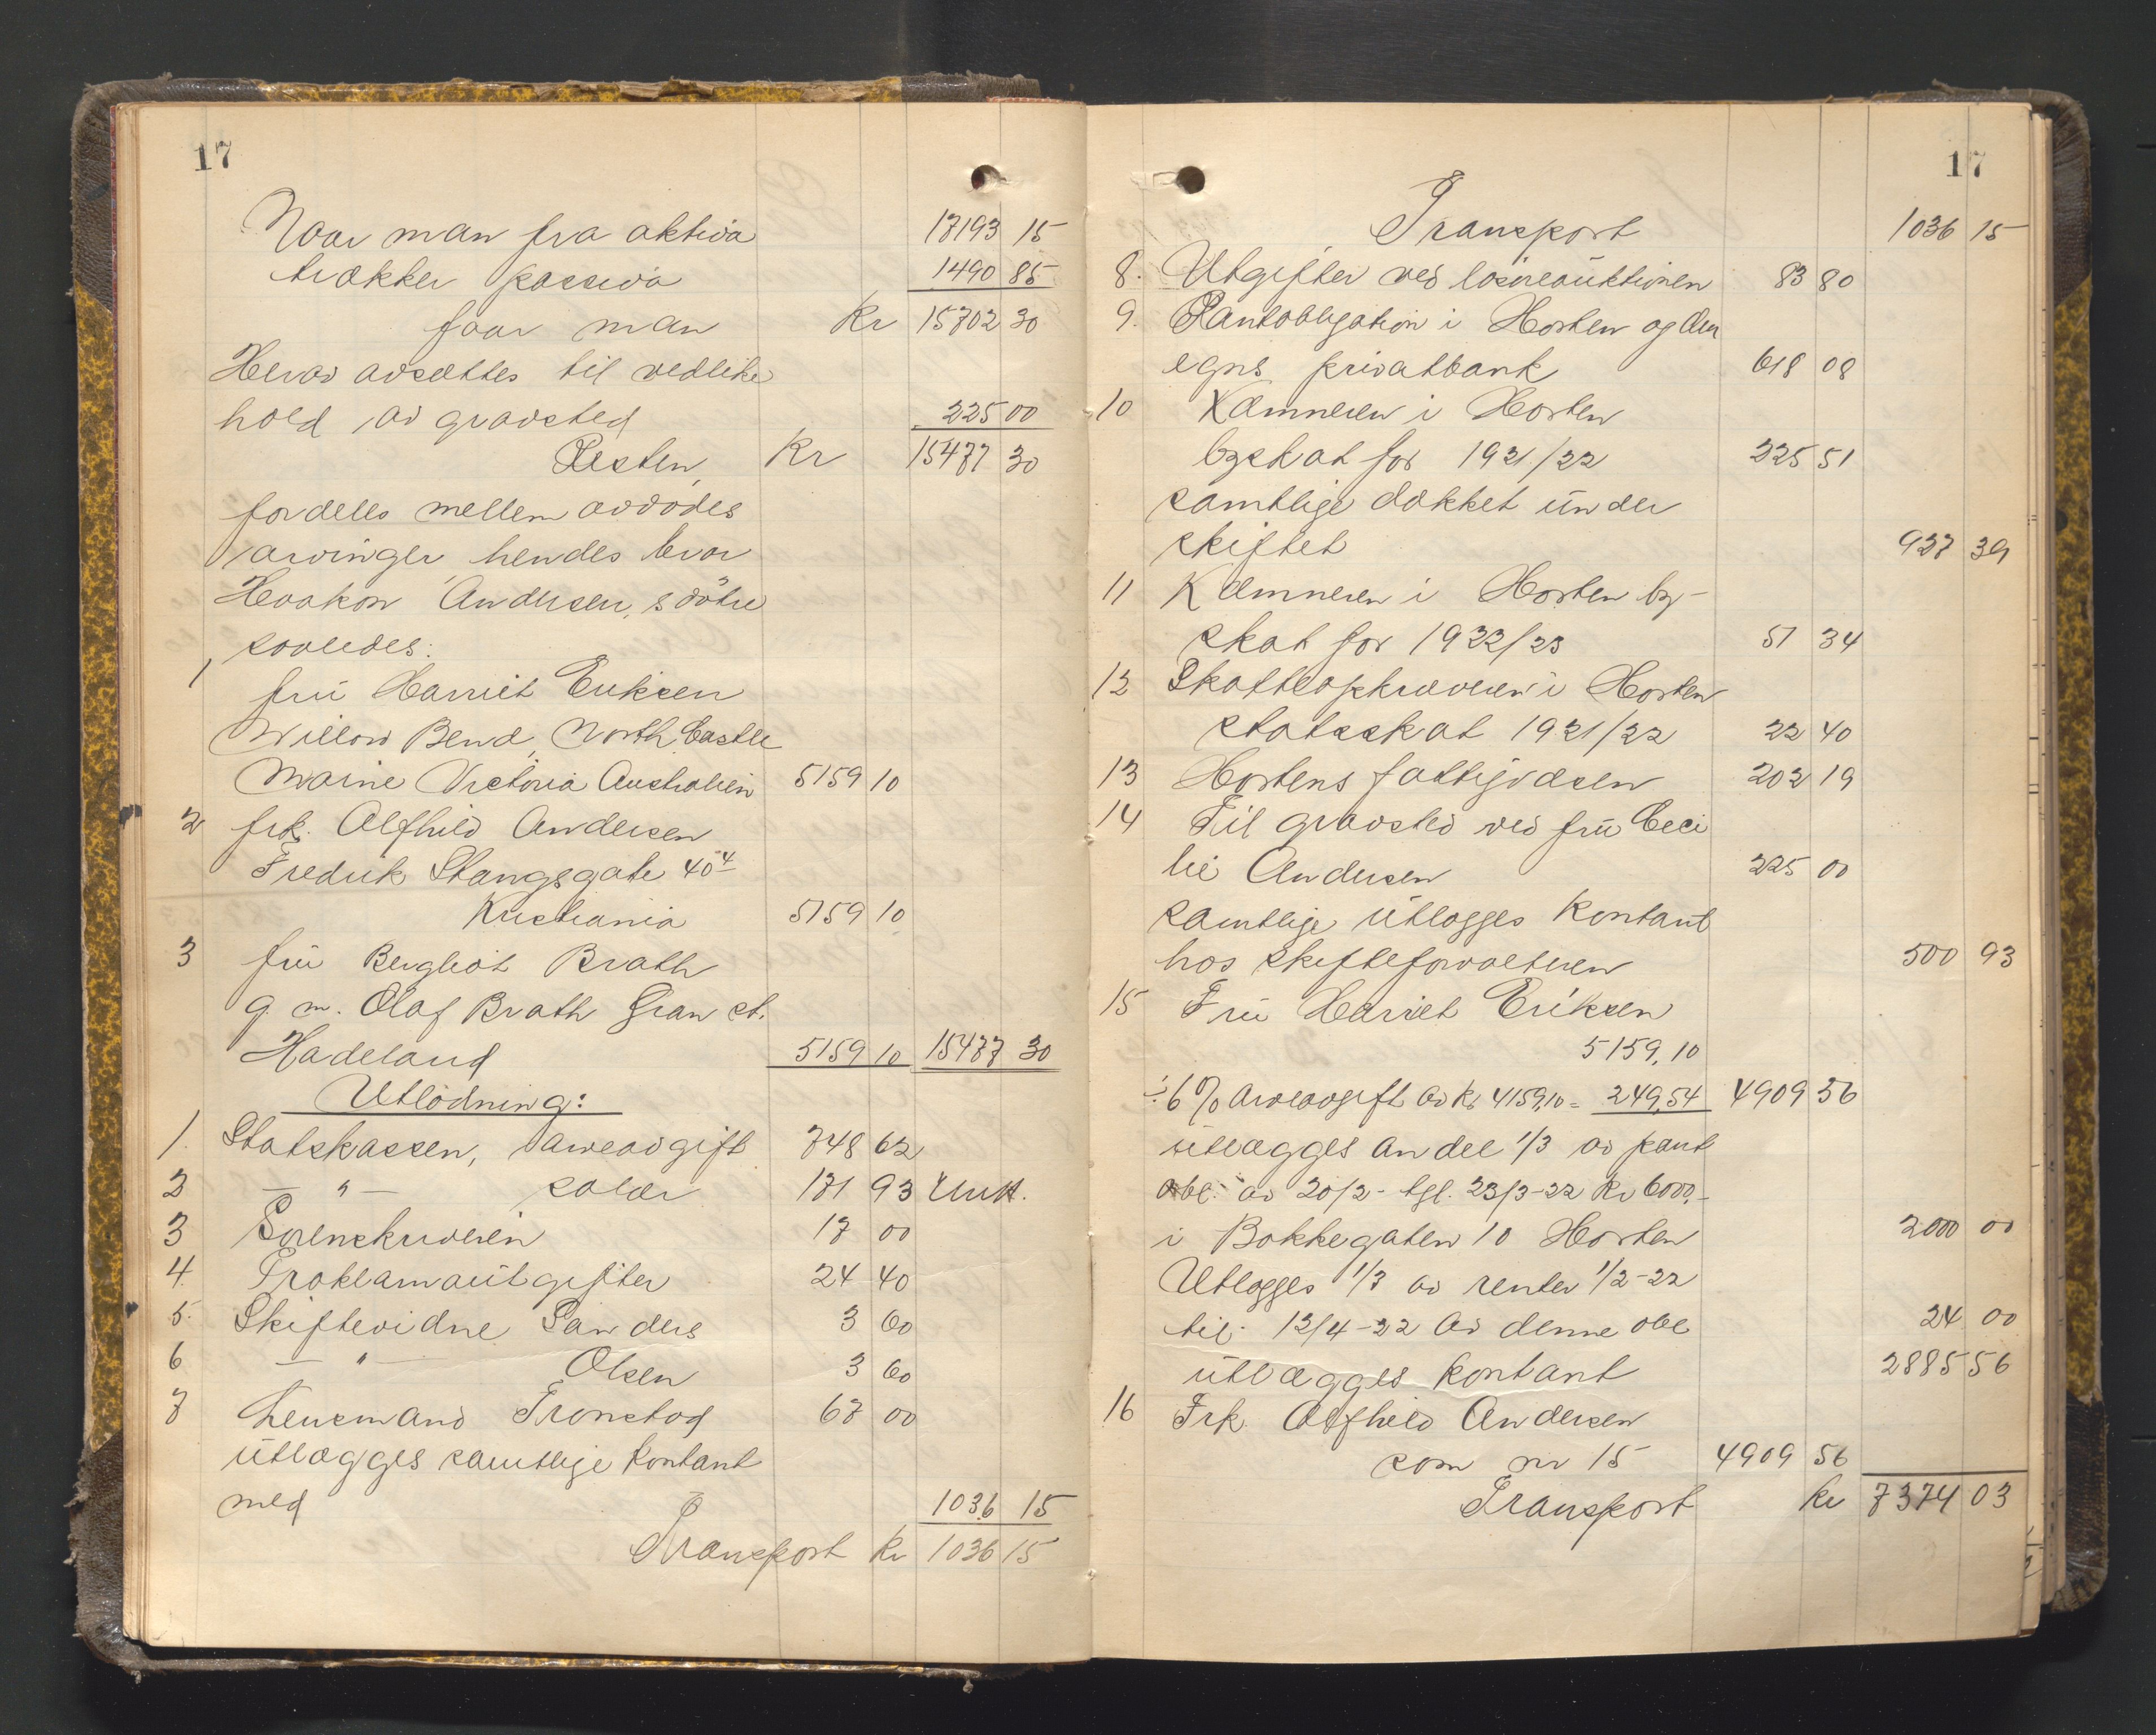 17
Naar man fra aktiva 17193 15
trækker passiva 1490 85
faar man Kr 15702 30
Herav avsættes til vedlike
hold av gravsted 225 00
Resten, Kr 15477 30
fordeles mellem avdødes
arvinger, hendes bror
Haakon Andersen, s døtre
saaledes:
1 fru Harriet Eriksen
Willow Bend, North Castle
Maine Victoria Australien 5159 10
2 frk. Alfhild Andersen
Fredrik Stangsgate 40 4
Kristiania 5159 10
3 fru Bergliot Brath
g. m. Olaf Brath Gran st.
Hadeland 5159 10 15477 30
Utlodning:
1. Statskassen, arveavgift 748 62
2 — " — salær 171 93
3 Sorenskriveren 17 00
4. Proklamautgifter 24 40
5. Skiftevidne Sanders 3 60
6 — " — Olsen 3 60
7 Lensmand Tronstad 67 00
utlægges samtlige kontant
med 1036 15
Transport Kr 1036 15
17
Transport 1036 15
8. Utgifter ved løsøreauktionen 83 80
9. Pantobligation i Horten og Om
egns privatbank 618 08
10 Kæmneren i Horten
byskat for 1921/22 225 51
samtlige dækket under
skiftet 927 39
11 Kæmneren i Horten by-
skat for 1922/23 51 34
12 Skatteopkræveren i Horten
statsskat 1921/22 22 40
13 Hortens fattigvæsen 202 19
14 Til gravsted ved fru Ceci
lie Andersen 225 00
samtlige utlægges kontant
hos skifteforvalteren 500 93
15 Fru Harriet Eriksen
5159,10
÷ 6% arveavgift av Kr 4159,10 = 249,54 4909 56
utlægges andel 1/3 av pant
obl. av 20/2 - tgl. 23/3-22 Kr 6000.-
i Bakkegaten 10 Horten 2000 00
Utlægges 1/3 av renter 1/2-22
til 12/4-22 av denne obl 24 00
utlægges kontant 2885 56
16 Frk. Alfhild Andersen
som nr 15 4909 56
Transport kr 7374 03